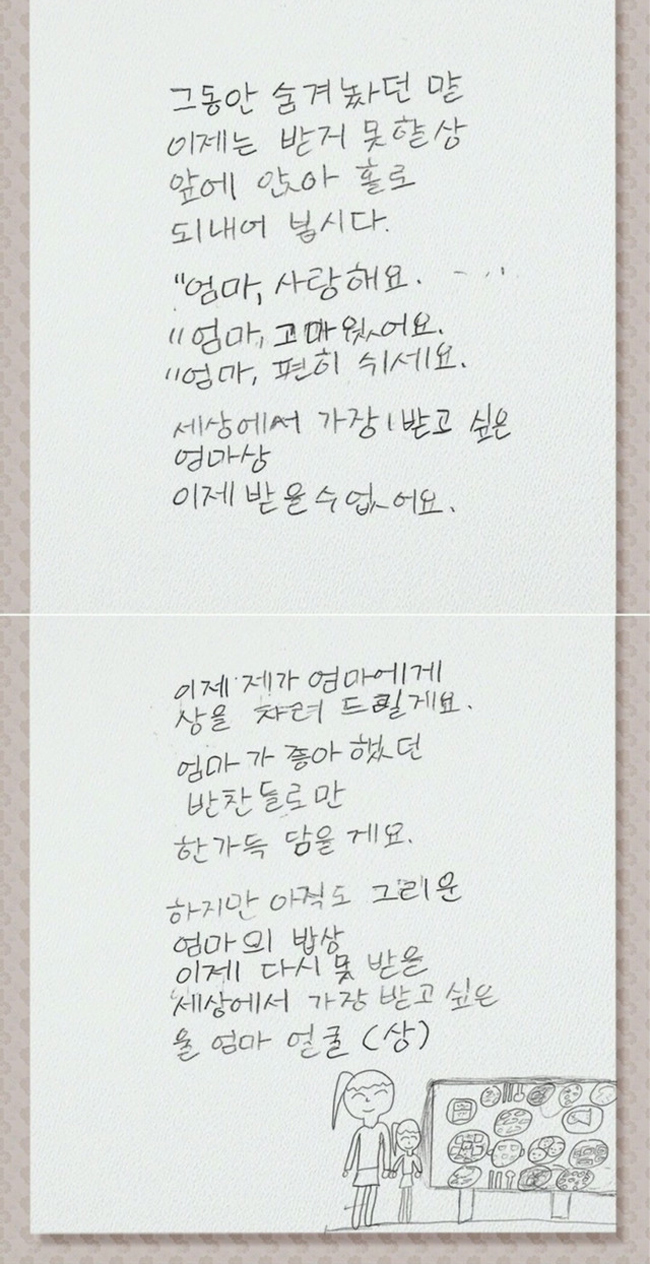 그동안 숨겨놨던 말
이제는 받지 못할 상
앞에 앉아 홀로
되내어 봅시다.
"엄마, 사랑해요.
"엄마, 고마웠어요.
"엄마, 편히 쉬세요.
세상에서 가장 받고 싶은
엄마상
이제 받을수 없어요.
이제 제가 엄마에게
상을 차려 드릴게요.
엄마가 좋아했던
반찬들로만
한가득 담을게요.
하지만 아직도 그리운
엄마의 밥상
이제 다시 못 받을
세상에서 가장 받고 싶은
울 엄마 얼굴 (상)